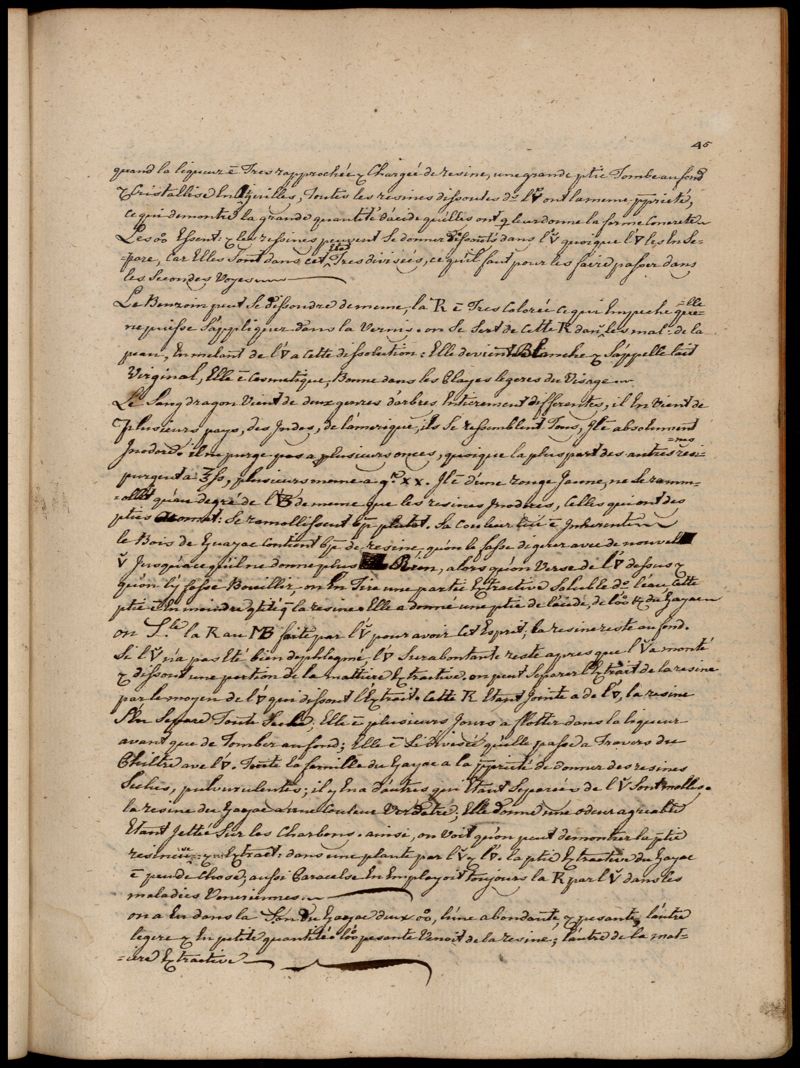 45
quand la liqueur ē Tres rapprochée & Chargée de resine, une grande ptie Tombe au fond
& Cristallise En Aiguilles, Toutes les resines dissoutes ds l'V̈ ont la meme pprieté,
ce qui demontre la grande quantité d'acide qu'elles ont q̄ leur donne la forme Concrete
Les oo Essent: & les ressines peuvent se donner dissouts dans l'V̈ quoique l'∇ les En Se-
-pare, Car Elles Sont dans cet Etat Tres divisées, ce qu'il faut pour les faire passer dans
les Secondes Voyes
Le Benzoin peut se dissoudre de meme, la R ē Tres Colorée ce qui Empeche qu'elle
ne puisse s'appliquer dans la Vernis. on Se Sert de Cette R dans les mal: de la
peau, En melant de l'∇ a Cette dissolution: Elle devient Blanche & s'appelle lait
Virginal, Elle ē Cosmetique, Bonne dans les Playes legeres du Visage
Le Sang dragon Vient de deux genres d'arbres Entierement differentes, il En vient de
plusieurs pays, des Indes, de l'amerique, ils Se ressemblent Tous, Il ē absolument
Inodore il ne purge pas a plusieurs onces, quoique la plus part des autres resi-
-nes
purgent a ʒſs, plusieurs meme a gr xx. Il ē d'une rouge Jaune, ne se ramm-
-ollit qu'au degré de l'∇B de meme que les resines Inodores, Celles qui ont des
pties Aromat: se ramollissent bp plutot. Sa Couleur lui ē Inherente
le Bois de Guayac Contient bp de resine, qu'on le fasse digerer avec de nouvel
V̈ Jusqu'a ce qu'il ne donne plus Rien, alors qu'on Verse de l'∇ dessus &
qu'on l'y fasse Bouillir, on En Tire une partie Extractive Soluble ds l'eau Cette
ptie ē En moindre qtité q̄ la resine. Elle a donné une ptie de l'acide, de l'oo & du Gayac
on S. le la R au MB faite par l'V̈ pour avoir Cet Esprit; la resine reste au fond.
Si l'V̈ n'a pas Eté bien dephlegmé, l'∇ Surabontante reste apres que l'V̈ a monté
& dissout une portion de la mattiere Extractive. on peut Separer l'Extrait de la resine
par le moyen de l'∇ qui dissout l'Extrait. Cette R Etant Jointe a de l'∇, la resine
S'en Separe Toute Seule. Elle ē plusieurs Jours a flotter dans la liqueur
avant que de Tomber au fond; Elle ē Si divisée qu'elle passe a Travers du
Philtre avec l'∇. Toute la famille du Gayac a la pprieté de donner des resines
Seches, pulverulentes; il y En a d'autres qui Etant Separées de l'V̈ Sont molles.
la resine du Gayac a une Couleur Verdatre; Elle donne une odeur agreable
Etant Jettée Sur les Charbons. ainsi, on Voit qu'on peut demontrer la ptie
resineuse & Extract: dans une plante par l'V̈ & l'∇. la ptie Extractive du Gayac
ē peu de Chose, aussi Paracelse En Employoit toujours la R par l'V̈ dans les
maladies Veneriennes
on a Eu dans la S.on du Gayac deux oo, l'une abondante & pesante, l'autre
legere & En petite quantité. l'oo pesante Venoit de la resine; l'autre de la mat-
-iere Extractive